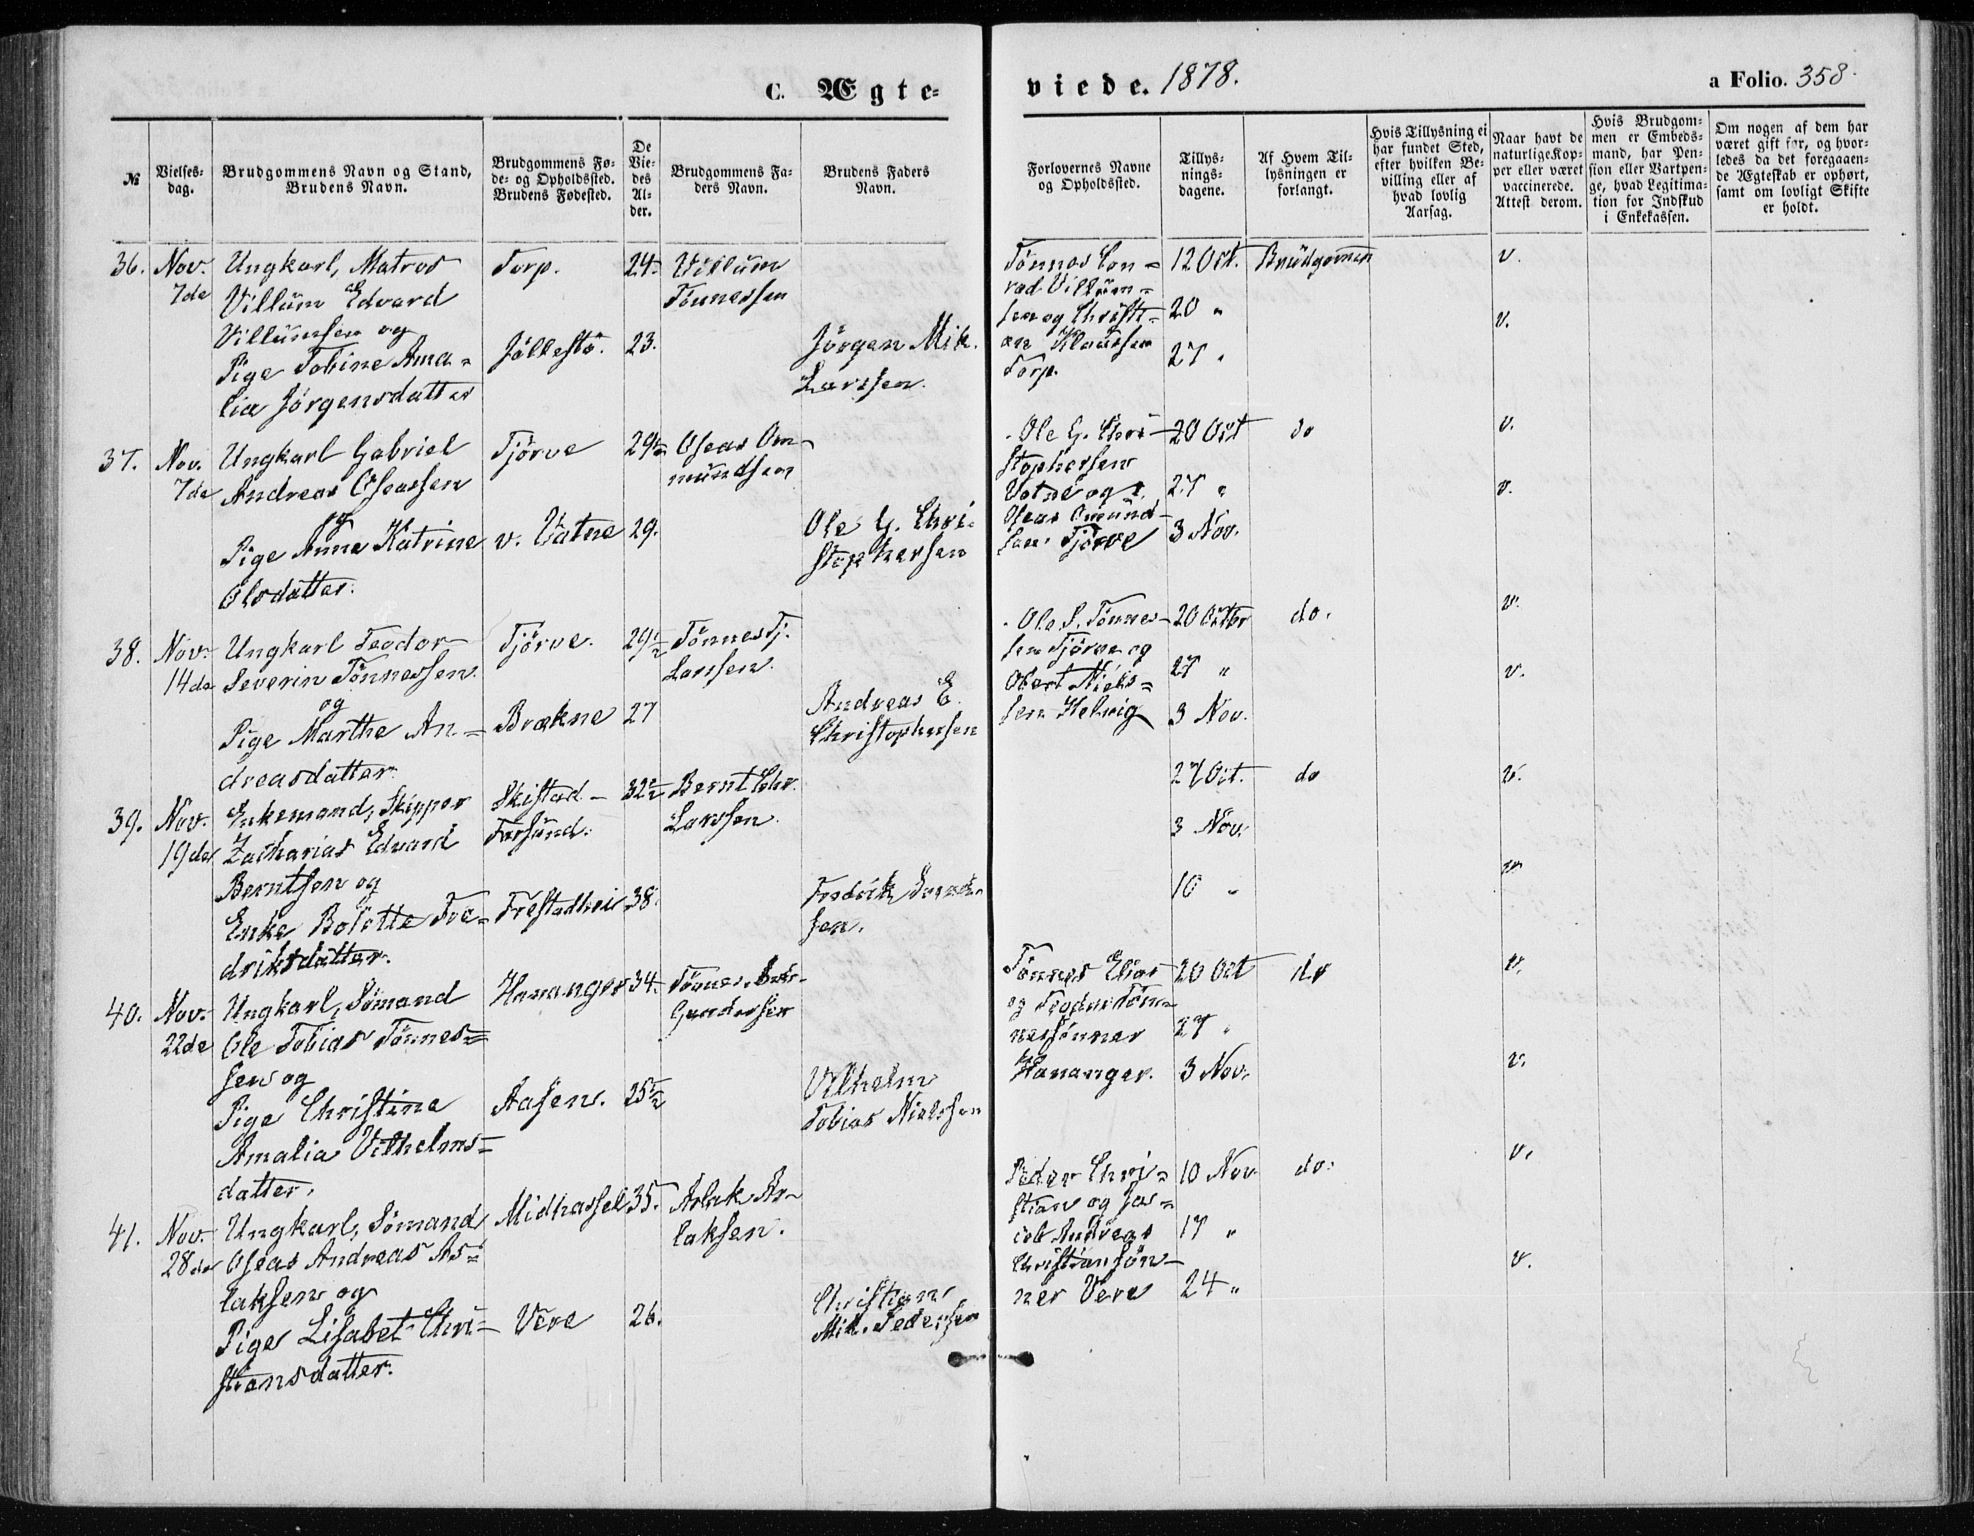 C. Ægte=
viede. 1878.
a Folio. 358.
№
Vielses-
dag.
Brudgommens Navn og Stand,
Brudens Navn.
Brudgommens Fø-
de- og Opholdssted.
Brudens Fødested.
De
Vie-
des
Al-
der.
Brudgommens Fa-
ders Navn.
Brudens Faders
Navn.
Forlovernes Navne
og Opholdssted.
Tillys-
nings-
dagene.
Af Hvem Til-
lysningen er
forlangt.
Hvis Tillysning ei
har fundet Sted,
efter hvilken Be-
villing eller af
hvad lovlig
Aarsag.
Naar havt de
naturlige Kop-
per eller været
vaccinerede.
Attest derom.
Hvis Brudgom-
men er Embeds-
mand, har Pen-
sion eller Vartpen-
ge, hvad Legitima-
tion for Indskud
i Enkekassen.
Om nogen af dem har
været gift før, og hvor-
ledes da det foregaaen-
de Ægteskab er ophørt,
samt om lovligt Skifte
er holdt.
36.
Nov.
7de
Ungkarl, Matros
Villum Edvard
Villumsen og
Pige Tobine Ama-
lia Jörgensdatter
Torp.
Jöllestö.
24.
23.
Villum
Tönnessen
Jörgen Mik.
Larssen.
Tönnes Con-
rad Villum-
sen og Christi-
an Klaussen
Torp.
12 Oct.
20 "
27 "
Brudgommen
v.
v.
37.
Nov.
7de
Ungkarl Gabriel
Andreas Oseassen
og
Pige Anne Katrine
Olsdatter.
Tjörve
v. Vatne
29
29.
Oseas Om-
mundsen
Ole G. Chri-
stophersen
Ole G. Chri-
stophersen
Vatne og
Oseas Omund-
sen Tjörve
20 Oct
27 "
3 Nov.
do
v.
v.
38.
Nov.
14de
Ungkarl Teodor
Severin Tönnessen
og
Pige Marthe An-
dreasdatter.
Tjörve.
Brækne
29½
27
Tönnes Tj.
Larssen.
Andreas E.
Christophersen
Ole S. Tönnes-
sen Tjörve og
Obert Niels-
sen Helvig
20 Octbr
27 "
3 Nov.
do.
v.
v.
39.
Nov.
19de
Enkemand, Skipper
Zacharias Edvard
Berntsen og
Enke Bolette Fre-
driksdatter.
Skistad
Farsund.
Frestadhei
32½
38.
Bernt Chr.
Larssen.
Fredrik
sen.
27 Oct.
3 Nov.
10 "
do
v.
v.
40.
Nov.
22de
Ungkarl, Sömand
Ole Tobias Tönnes-
sen og
Pige Christine
Amalia Vilhelms-
datter.
Hananger
Aasen.
34.
25½
Tönnes
Gundersen
Vilhelm
Tobias Nielssen
Tönnes Elias
og Teodor Tön-
nessönner
Hananger.
20 Oct
27 "
3 Nov.
do
v.
v.
41.
Nov.
28de
Ungkarl, Sömand
Oseas Andreas As-
laksen og
Pige Lisabet Chri-
stiansdatter.
Midhassel
Vere
35.
26.
Aslak As-
laksen.
Christian
Mik. Pedersen
Peder Chri-
stian og Ja-
cob Andreas
Christiansön-
ner Vere
10 Nov
17 "
24 "
do.
v.
v.